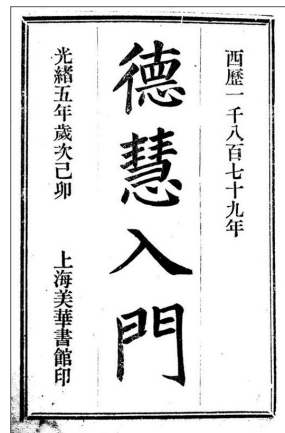 西歷一千八百七十九年
德慧入門
光緒五年歲次己卯
上海美華書館印